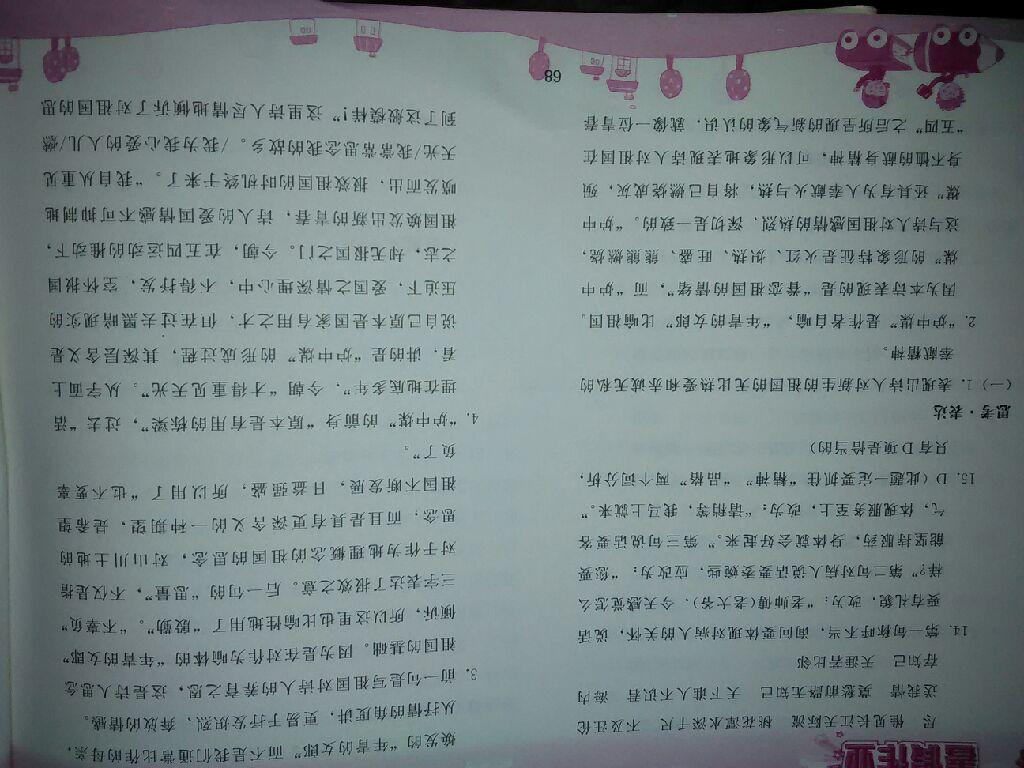 暑假作业
尽 惟见长江天际流 桃花潭水深千尺 不及汪伦
送我情 莫愁前路无知己 天下谁人不识君 海内
存知己 天涯若比邻
14. 第一句称呼不当，询问要体现对病人的关怀，说话
要有礼貌，改为：“老师傅(老大爷)，今天感觉怎么
样?”第二句对病人说话要委婉些，应改为：“您要
能坚持服药，身体就会好起来。”第三句说话要客
气，体现服务至上，改为：“请稍等，我马上就来。”
15. D (此题一定要抓住“精神”“品格”两个词分析，
只有D项是恰当的)
思考·表达
(一) 1. 表现出诗人对新生的祖国的无比热爱和赤诚无私的
奉献精神。
2. “炉中煤”是作者自喻，“年青的女郎”比喻祖国。
因为本诗表现的是“眷恋祖国的情绪”，而“炉中
煤”的形象特征是火红、炽热、旺盛、熊熊燃烧，
这与诗人对祖国感情的热烈、深切是一致的。“炉中
煤”还具有为人奉献火与热，将自己燃烧成灰，殒
身不恤的献身精神，可以形象地表现诗人对祖国在
“五四”之后所呈现的新气象的认识，就像一位青春
焕发的“年青的女郎”而不是我们通常比作的母亲，
从抒情的角度讲，更易于抒发炽烈、奔放的情感。
3. 前一句是写祖国对诗人的养育之恩，这是诗人思念
祖国的基础。因为是在对作为喻体的“年青的女郎”
倾诉，所以这里也比喻性地用了“殷勤”。“不辜负”
三字表达了报效之意。后一句的“思量”，不仅是指
对于作为地理概念的祖国的思念，对山川土地的
思念，而且是具有更深含义的一种期望，是希望
祖国不断发展，日益强盛，所以用了“也不要辜
负了”。
4. “炉中煤”的前身“原本是有用的栋梁”，过去“活
埋在地底多年”，今朝“才得重见天光”。从字面上
看，讲的是“炉中煤”的形成过程，其深层含义是
说自己原本是国家有用之才，但在过去黑暗现实的
压迫下，爱国之情深埋心中，不得抒发，空怀报国
之志，却无报国之门。今朝，在五四运动的推动下，
祖国焕发出新的青春，诗人的爱国情感不可抑制地
喷发而出，报效祖国的时机终于来了。“我自从重见
天光/我常常思念我的故乡。/我为我心爱的人儿/燃
到了这般模样!”这里诗人尽情地倾诉了对祖国的思
89